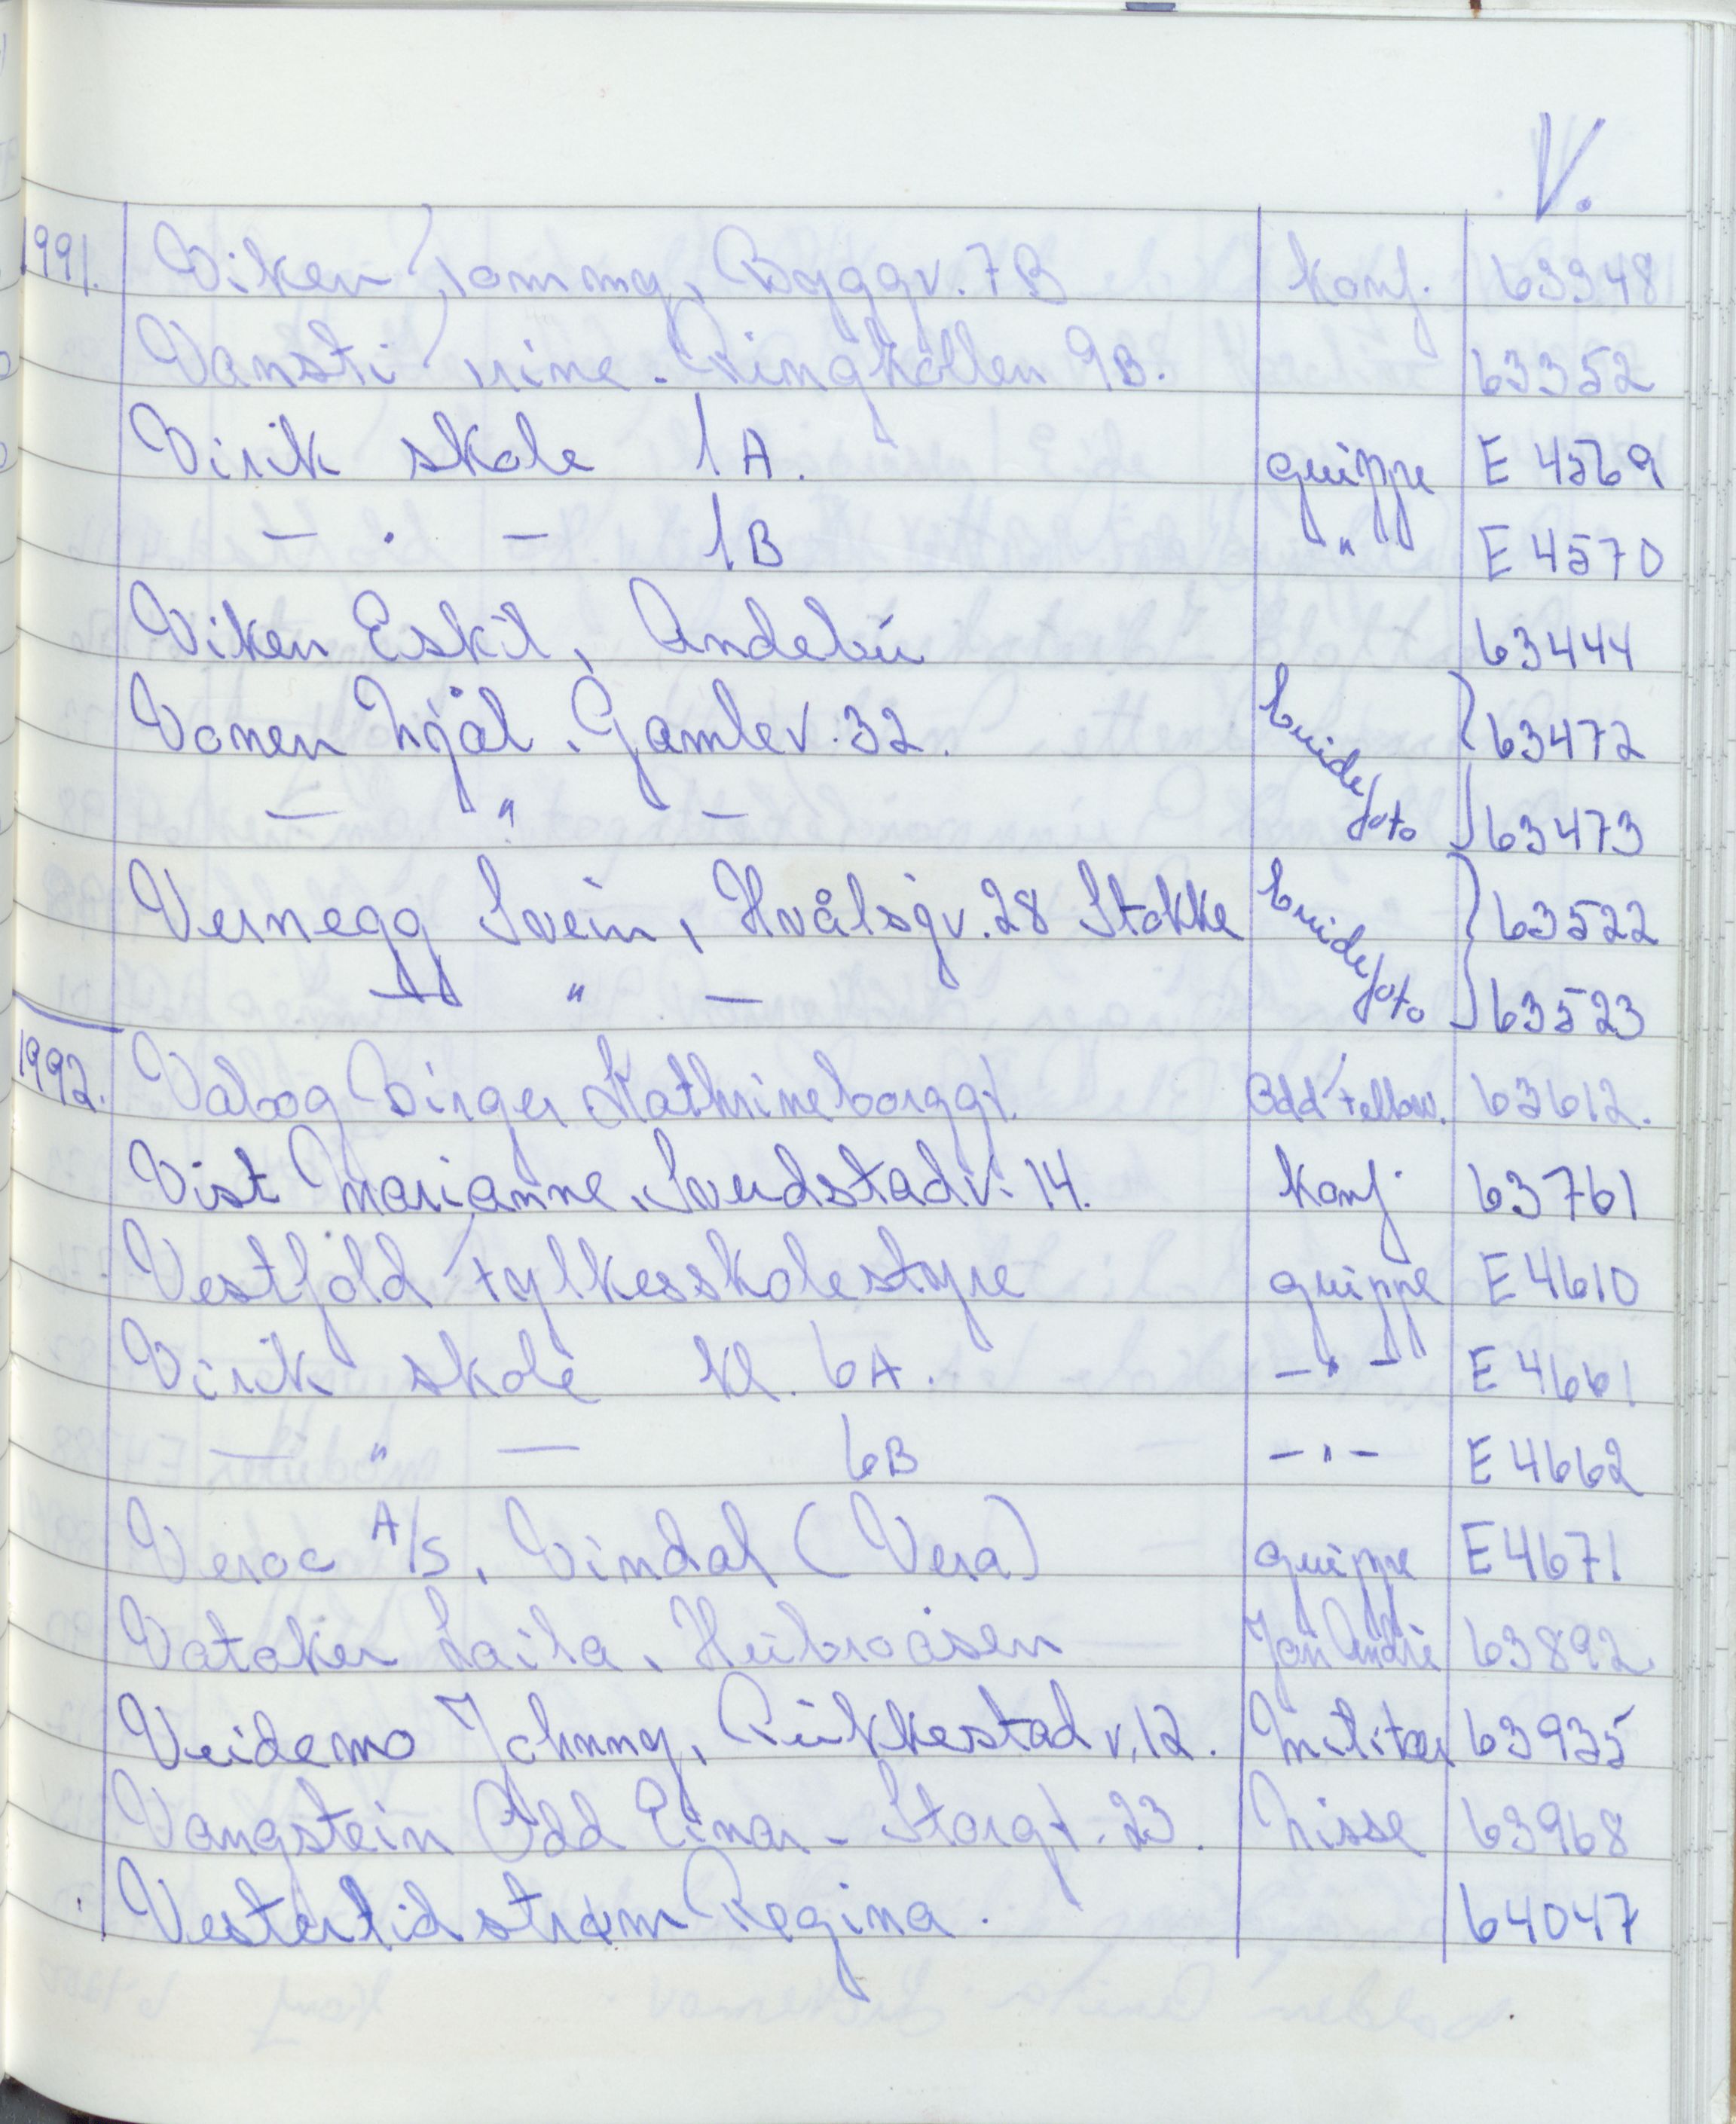 V.
1991. Viken Tommy, Byggv. 7B konf. 63348
Vansti Trine. Ringkollen 9B. 63352
Virik skole 1A. gruppe E 4569
— . — 1B " E 4570
Viken Eskil, Andebu 63444
Vonen Njål. Gamlev. 32. brudefoto 63472
— " — 63473
Vernegg Svein, Hvålsgv. 28 Stokke brudefoto 63522
— " — 63523
1992. Valog Birger Kathrineborggt. Odd Fellow. 63612.
Vist Marianne. Sverdstadv. 14. konf. 63761
Vestfold Fylkesskolestyre gruppe E 4610
Virik skole kl. 6A. — " — E 4661
— " — 6B — " — E 4662
Veroc A/S, Vindal (Vera) gruppe E 4671
Vataker Laila. Heibroåsen Jan André 63892.
Veidemo Johnny, Rukkestad v. 12. Militær 63935
Vangstein Odd Einar - Storgt. 23. Nisse 63968
Vesterlid strøm Regina. 64047